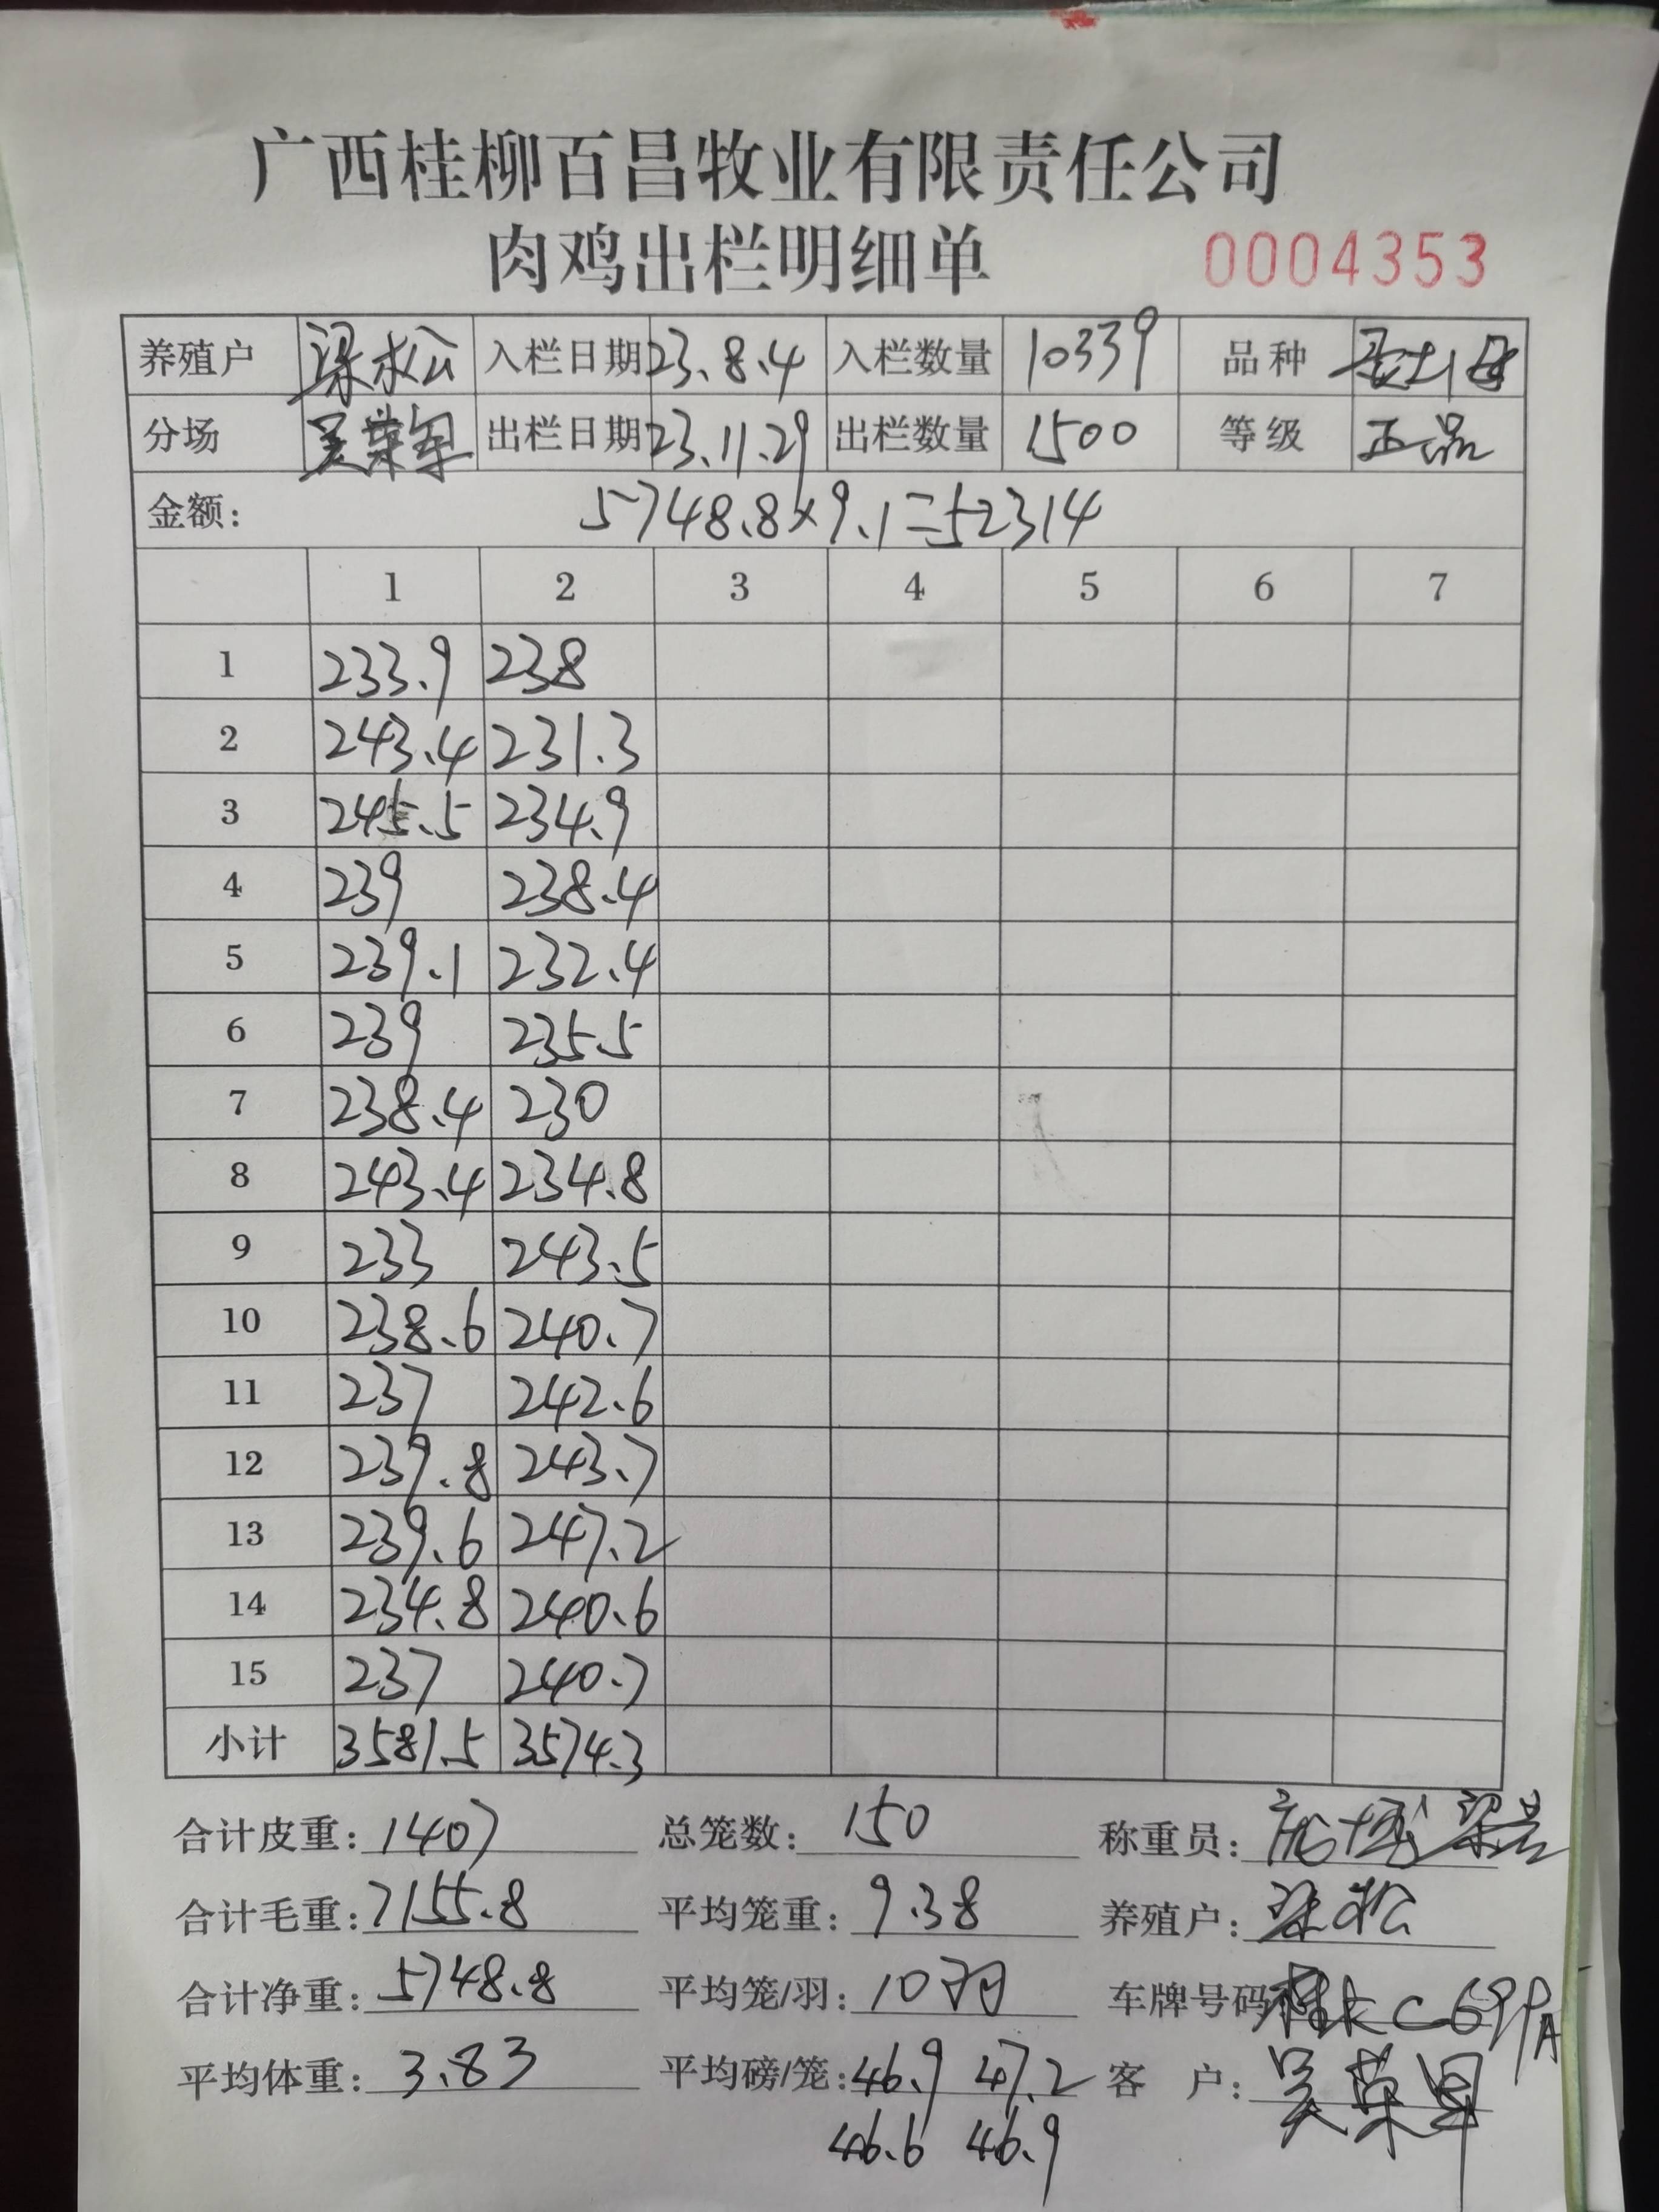 广西桂柳百昌牧业有限责任公司
肉鸡出栏明细单 0004353
养殖户 梁水松 入栏日期 23.8.4 入栏数量 10339 品种
分场 吴荣军 出栏日期 23.11.29 出栏数量 1500 等级 正品
金额: 5748.8×9.1=52314
1 2 3 4 5 6 7
1 233.9 238
2 243.4 231.3
3 245.5 234.9
4 239 238.4
5 239.1 232.4
6 239 235.5
7 238.4 230
8 243.4 234.8
9 233 243.5
10 238.6 240.7
11 237 242.6
12 239.8 243.7
13 239.6 247.2
14 234.8 240.6
15 237 240.7
小计 3581.5 3574.3
合计皮重: 1407 总笼数: 150 称重员:
合计毛重: 7155.8 平均笼重: 9.38 养殖户:
合计净重: 5748.8 平均笼/羽: 10羽 车牌号码: 桂KC699A
平均体重: 3.83 平均磅/笼: 46.9 47.2 客 户: 吴荣军
46.6 46.9